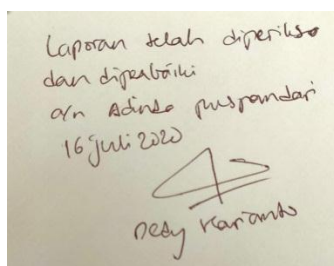 Laporan telah diperiksa
dan diperbaiki
a/n Adinda puspandari
16 juli 2020
Desy Karianto